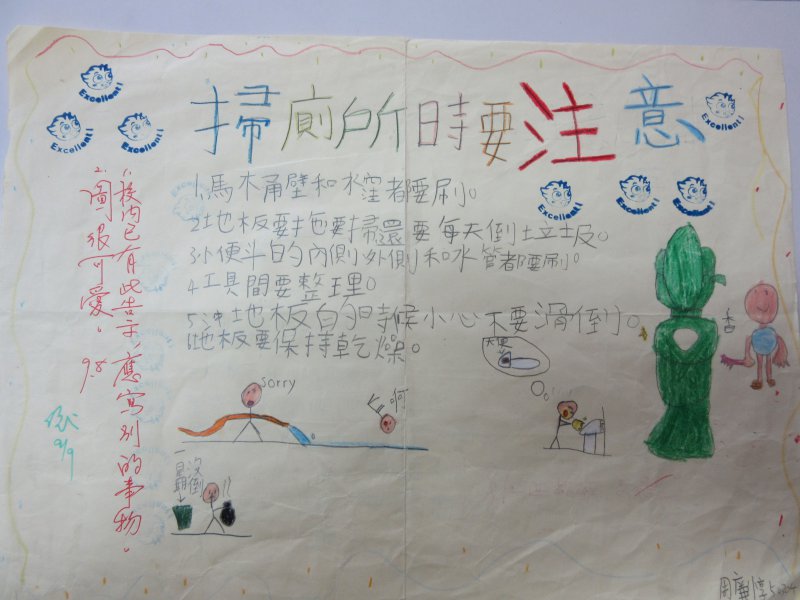 掃廁所時要注意
Excellent!
Excellent!
Excellent!
Excellent!
Excellent!
Excellent!
Excellent!
1.馬木桶壁和水窪都要刷。
2.地板要拖要掃還要每天倒垃圾。
3.小便斗的內側外側和水管都要刷。
4.工具間要整理。
5.沖地板的時候小心不要滑倒。
6.地板要保持乾燥。
1.校內已有此告示,應寫別的事物。
2.圖很可愛。
9.8
9/9
sorry
啊
大便
香
沒倒
周